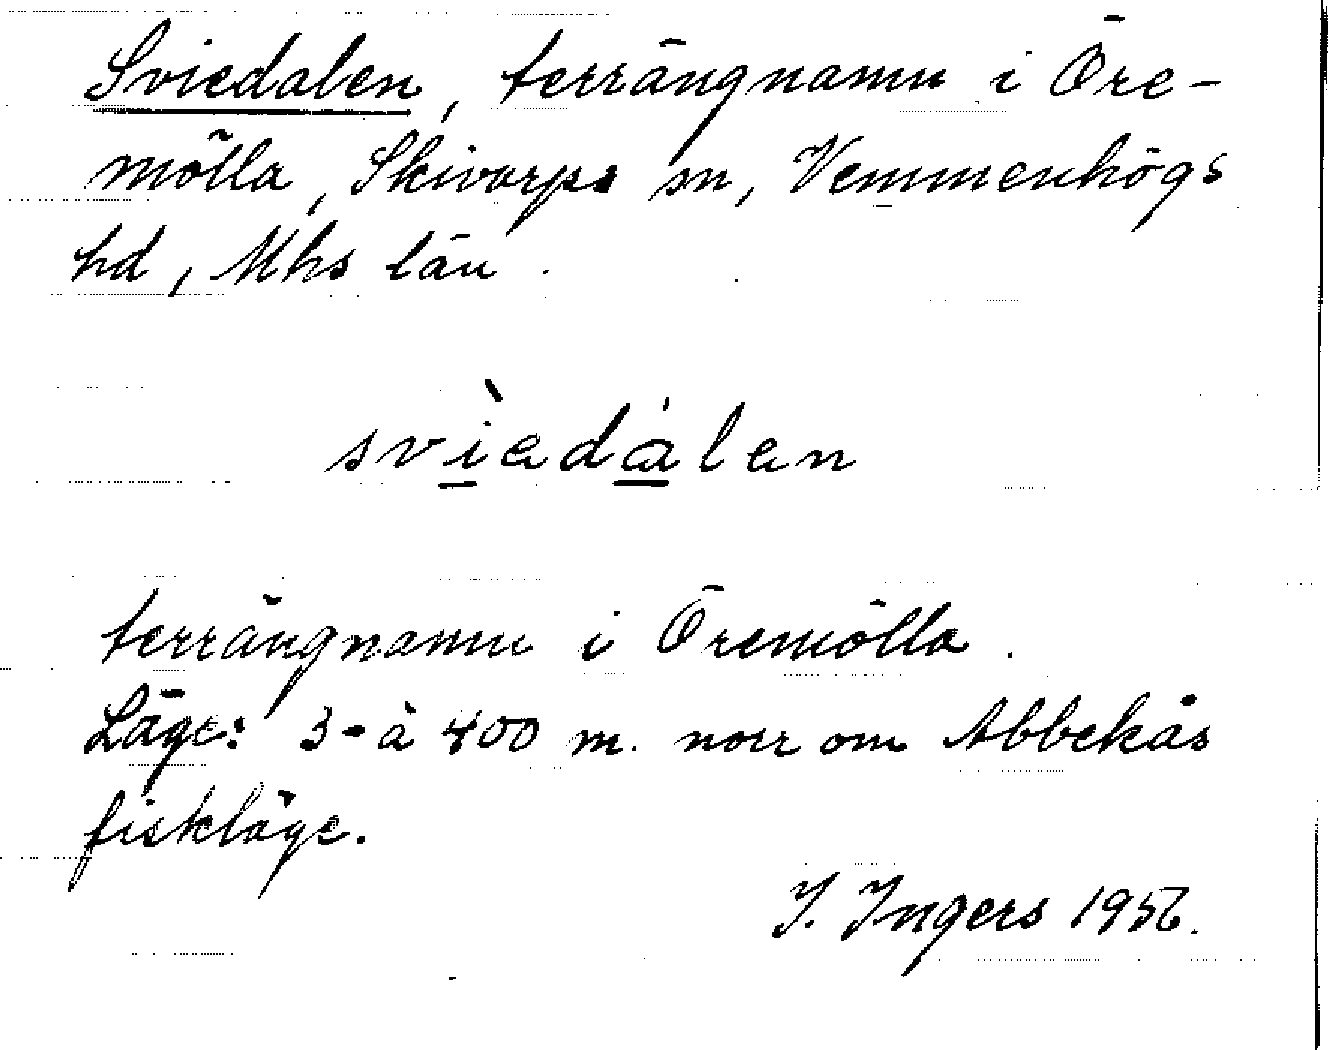 Sviedalen, terrängnamn i Öre-
mölla, Skivarps sn, Vemmenhögs
hd, Mhs län.
svìadálen
terrängnamn i Öremölla.
Läge: 3-à 400 m. norr om Abbekås
fiskläge.
I. Ingers 1956.